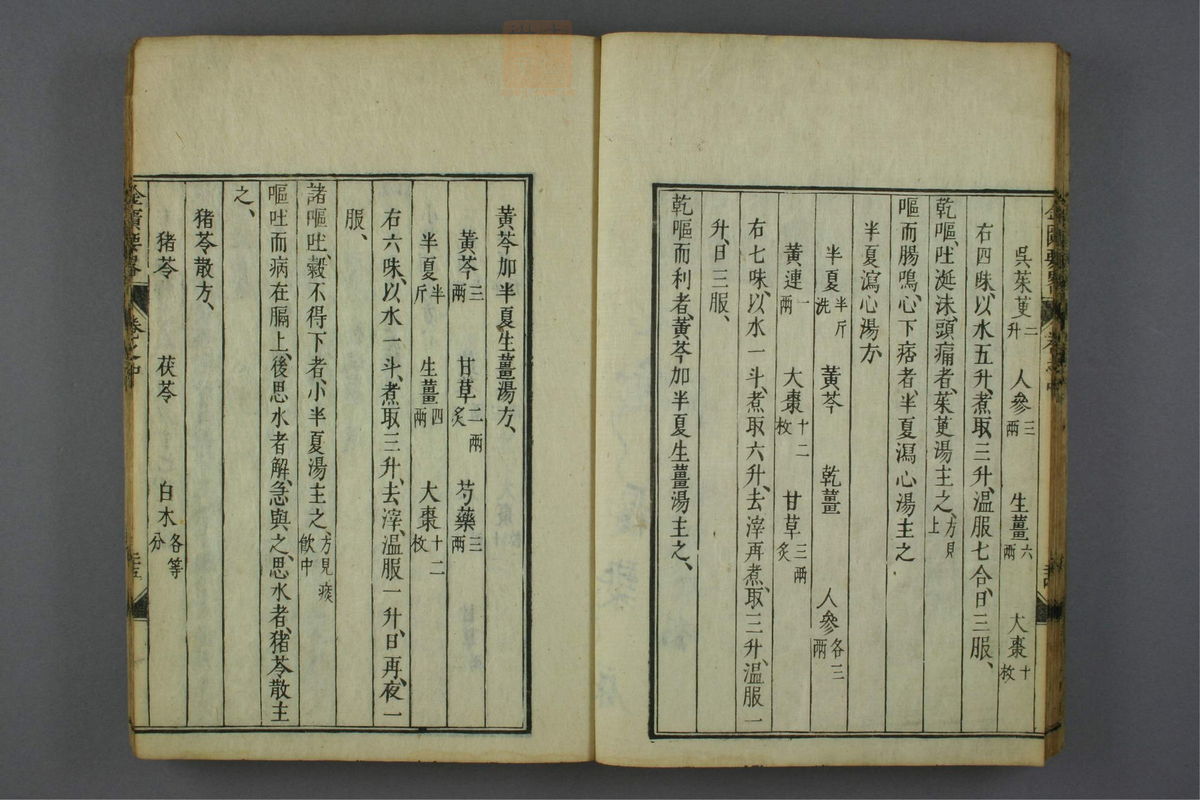 吳茱萸二升 人參三兩 生薑六兩 大棗十枚
右四味、以水五升、煮取三升、溫服七合、日三服、
乾嘔、吐涎沫、頭痛者、茱萸湯主之、方見上
嘔而腸鳴、心下痞者、半夏瀉心湯主之
半夏瀉心湯方
半夏半斤洗 黃芩 乾薑 人參各三兩
黃連一兩 大棗十二枚 甘草三兩炙
右七味、以水一斗、煮取六升、去滓再煮、取三升、溫服一
升、日三服、
乾嘔而利者、黃芩加半夏生薑湯主之、
黃芩加半夏生薑湯方、
黃芩三兩 甘草二兩炙 芍藥三兩
半夏半斤 生薑四兩 大棗十二枚
右六味、以水一斗、煮取三升、去滓、溫服一升、日再、夜一
服、
諸嘔吐、穀不得下者、小半夏湯主之、方見痰飲中
嘔吐而病在膈上、後思水者解、急與之、思水者、豬苓散主
之、
猪苓散方、
猪苓 茯苓 白朮各等分
金匱要畧 卷之中